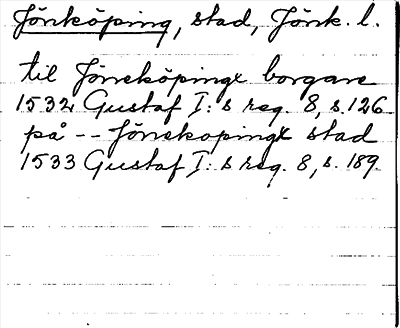 Jönköping, stad, Jönk. l.
til Jöneköpinge borgare
1532 Gustaf I:s reg. 8, s. 126
på -- Jönekoping stad
1533 Gustaf I:s reg. 8, s. 189.